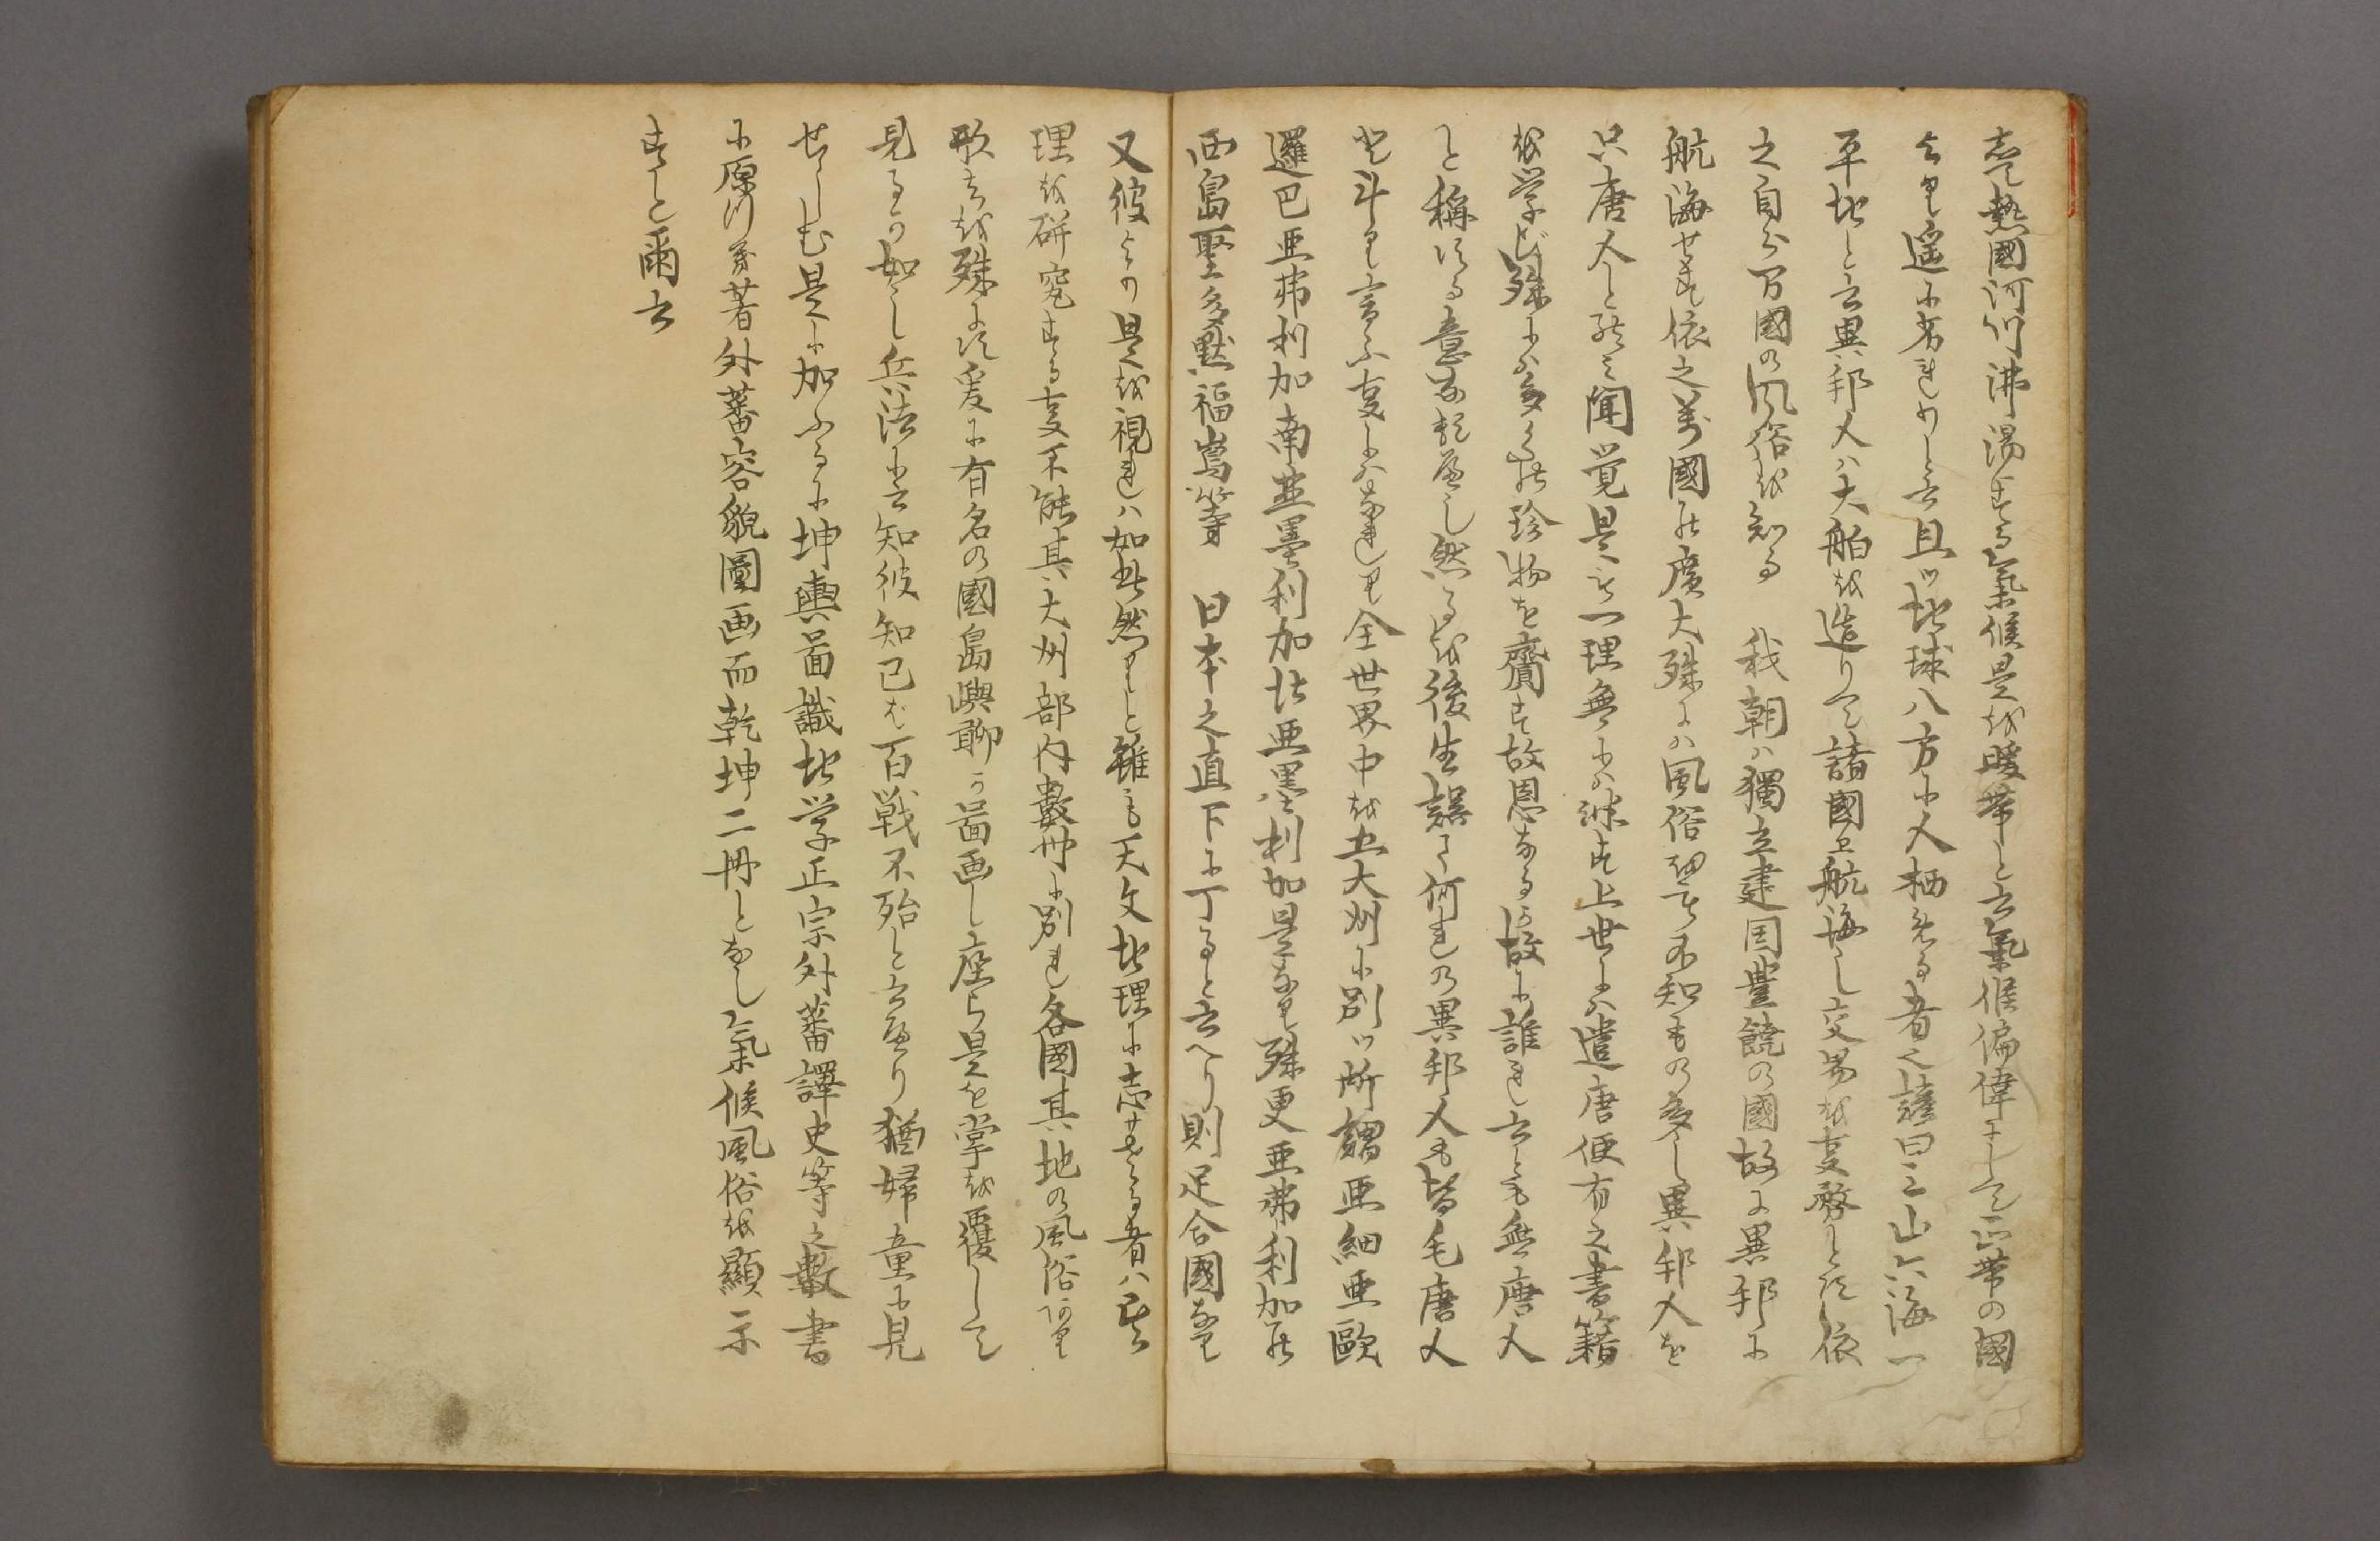 熱國河川沸湯する氣候是を暖帯と云氣候偏偉にして正帯の國
より遥に劣れりと云且ツ地球八方に人栖める者之諺曰三山六海一
平地と云異邦人ハ大舶を造りて諸國エ航海し交易を支務とす依
之自分万國の風俗を知る 我朝ハ獨立建国豊饒の國故に異邦に
航海せす依之萬國の廣大殊にハ風俗不知もの多し異邦人を
只唐人と而已聞覚是を一理無にハ非す上世にハ遣唐使有之書籍
を学び殊に多くの珍物を齎す故恩なるか故に誰れ云とも無唐人
と称する意なるべし然るを後生誤て何れの異邦人も皆毛唐人
と斗り言ふ支にハなれり全世界中を五大州に別ツ所謂亜細亜歐
邏巴亜弗利加南亜墨利加北亜墨利加是なり殊更亜弗利加の
西島聖多黙福嶌等 日本之直下に丁ると云へり則足合國なり
又彼より是を視れハ如此然りと雖も天文地理に志せさる者ハ其
理を研究する支不能其大州部内數州に別れ各國其地の風俗あり
形ちを殊にす爰に有名の國島嶼聊か啚画し座ら是を掌を覆して
見るか如し兵法に云知彼知己ば百戦不殆と云へり猶婦童に見
せしむ是に加ふるに坤輿啚識地学正宗外蕃譯史等之數書
に原川著外蕃容貌圖画而乾坤二冊となし氣候風俗を顯示
すと爾云